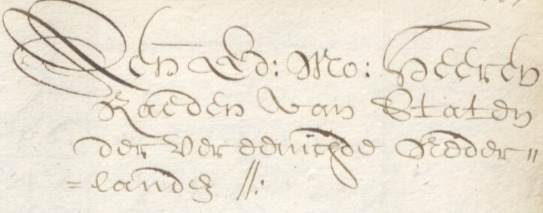 Den Ed: Mo: Heeren
Raeden van Staten
der vereenichde Neder=
=landen //: